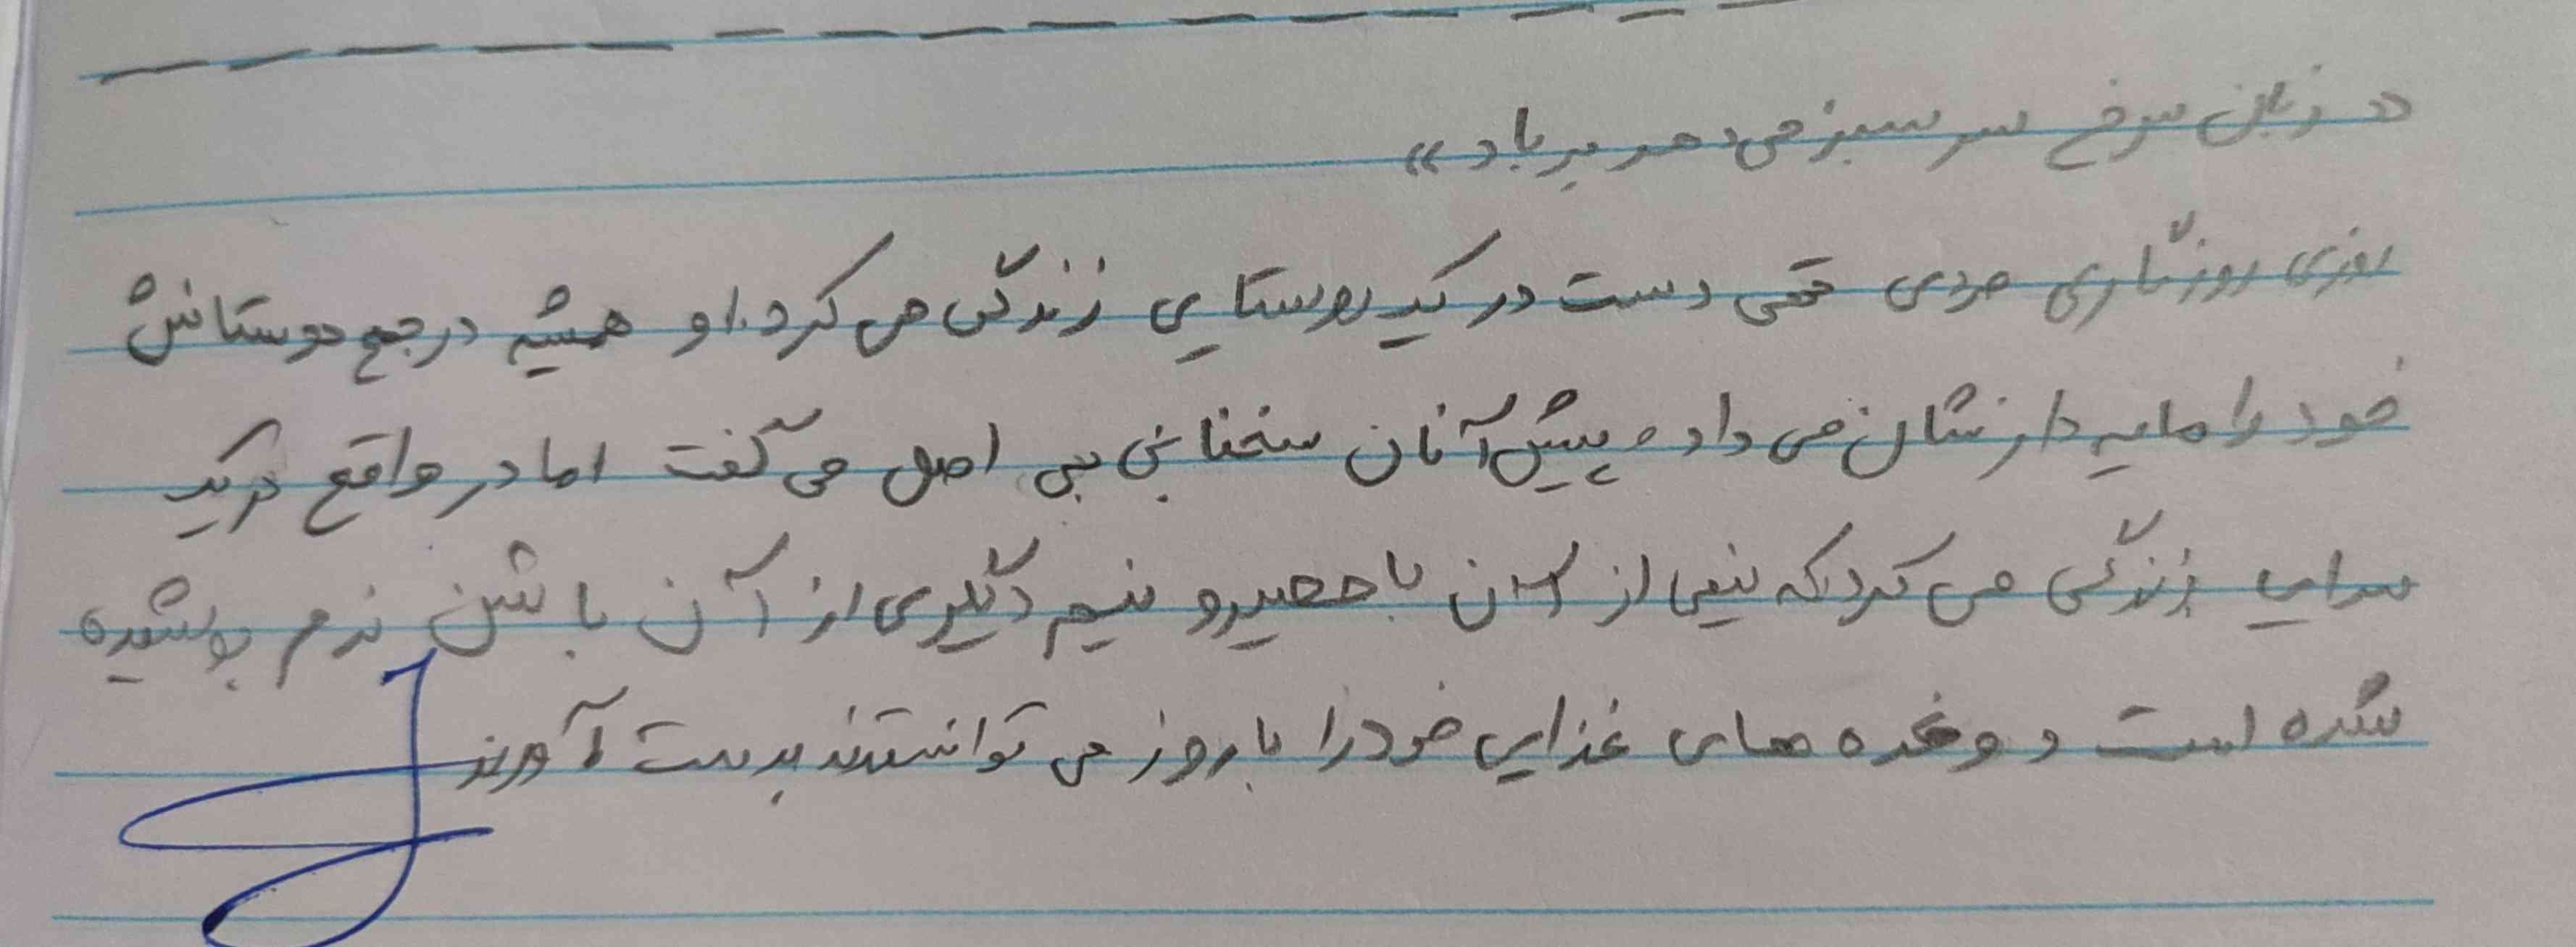 «زبان سرخ سر سبز می دهد بر باد»
روزی روزگاری مردی تهی دست در یک روستایی زندگی می کرد. او همیشه در جمع دوستانش
خود را مایه دار نشان می داد و پیش آنان سخنانی بی اصل می گفت اما در واقع در یک
سرایی زندگی می کرد که نیمی از آن با حصیر و نیم دیگری از آن با شن نرم پوشیده
شده است و وعده های غذایی خود را با روز می توانستند بدست آورند